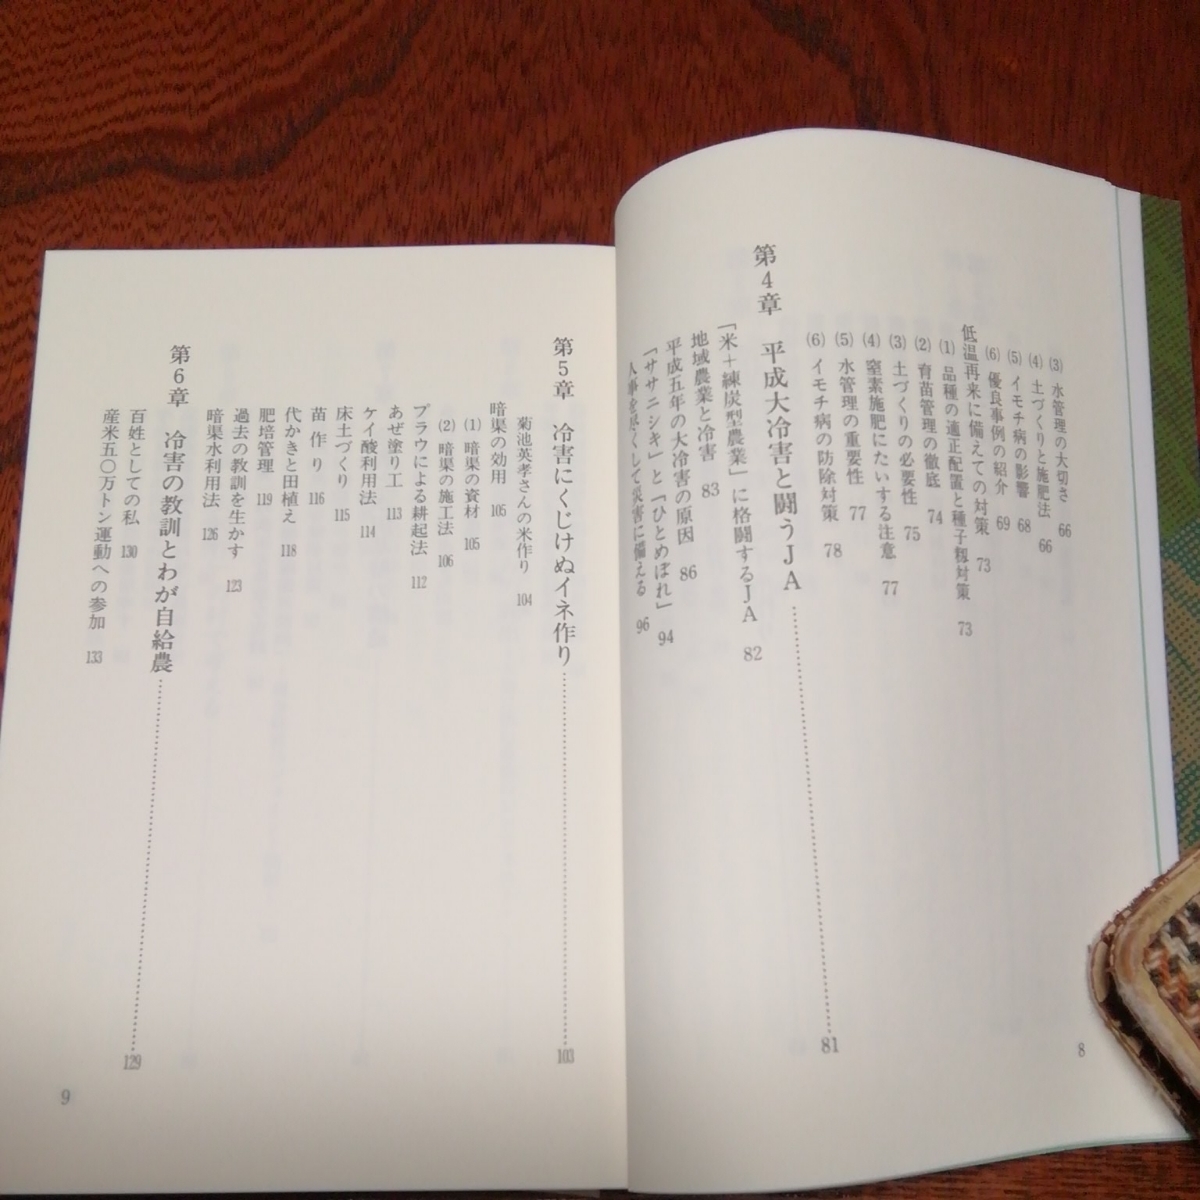 (3) 水管理の大切さ 66
(4) 土づくりと施肥法 66
(5) イモチ病の影響 68
(6) 優良事例の紹介 69
低温再来に備えての対策 73
(1) 品種の適正配置と種子籾対策 73
(2) 育苗管理の徹底 74
(3) 土づくりの必要性 75
(4) 窒素施肥にたいする注意 77
(5) 水管理の重要性 77
(6) イモチ病の防除対策 78
第4章 平成大冷害と闘うJA 81
「米+練炭型農業」に格闘するJA 82
地域農業と冷害 83
平成五年の大冷害の原因 86
「ササニシキ」と「ひとめぼれ」 94
人事を尽くして災害に備える 96
8
第5章 冷害にくじけぬイネ作り 103
菊池英孝さんの米作り 104
暗渠の効用 105
(1) 暗渠の資材 105
(2) 暗渠の施工法 106
プラウによる耕起法 112
あぜ塗り工 113
ケイ酸利用法 114
床土づくり 115
苗作り 116
代かきと田植え 118
肥培管理 119
過去の教訓を生かす 123
暗渠水利用法 126
第6章 冷害の教訓とわが自給農 129
百姓としての私 130
産米五〇万トン運動への参加 133
9